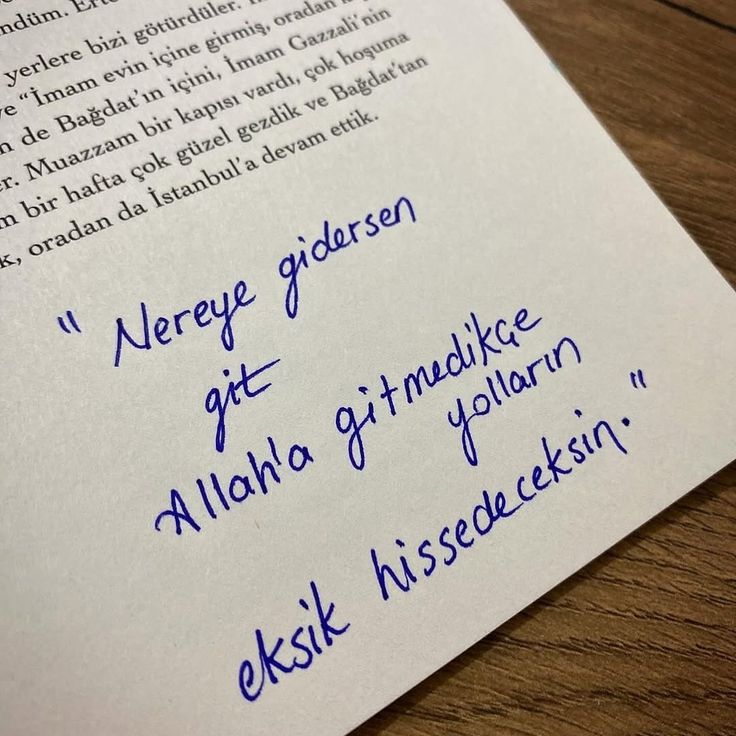 ndüm. Erte
yerlere bizi götürdüler.
ve "İmam evin içine girmiş, oradan
n de Bağdat'ın içini, İmam Gazzali'nin
er. Muazzam bir kapısı vardı, çok hoşuma
m bir hafta çok güzel gezdik ve Bağdat'tan
k, oradan da İstanbul'a devam ettik.
" Nereye gidersen
git
Allah'a gitmedikçe
yolların
eksik hissedeceksin."